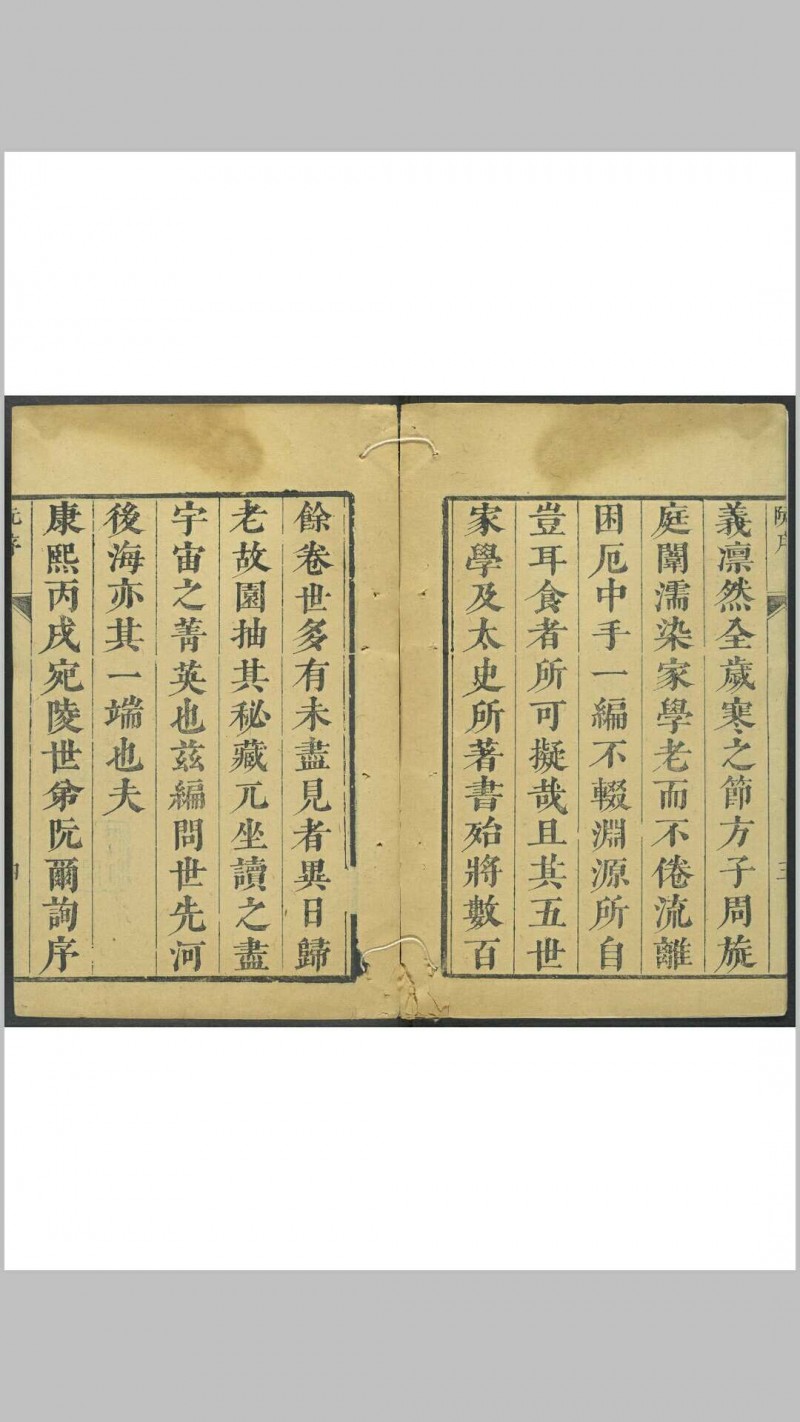 阮序
三
義凛然全歲寒之節方子周旋
庭闈濡染家學老而不倦流離
困厄中手一編不輟淵源所自
豈耳食者所可擬哉且其五世
家學及太史所著書殆將數百
餘卷世多有未盡見者異日歸
老故園抽其秘藏兀坐讀之盡
宇宙之菁英也兹編問世先河
後海亦其一端也夫
康熙丙戌宛陵世弟阮爾詢序
阮序